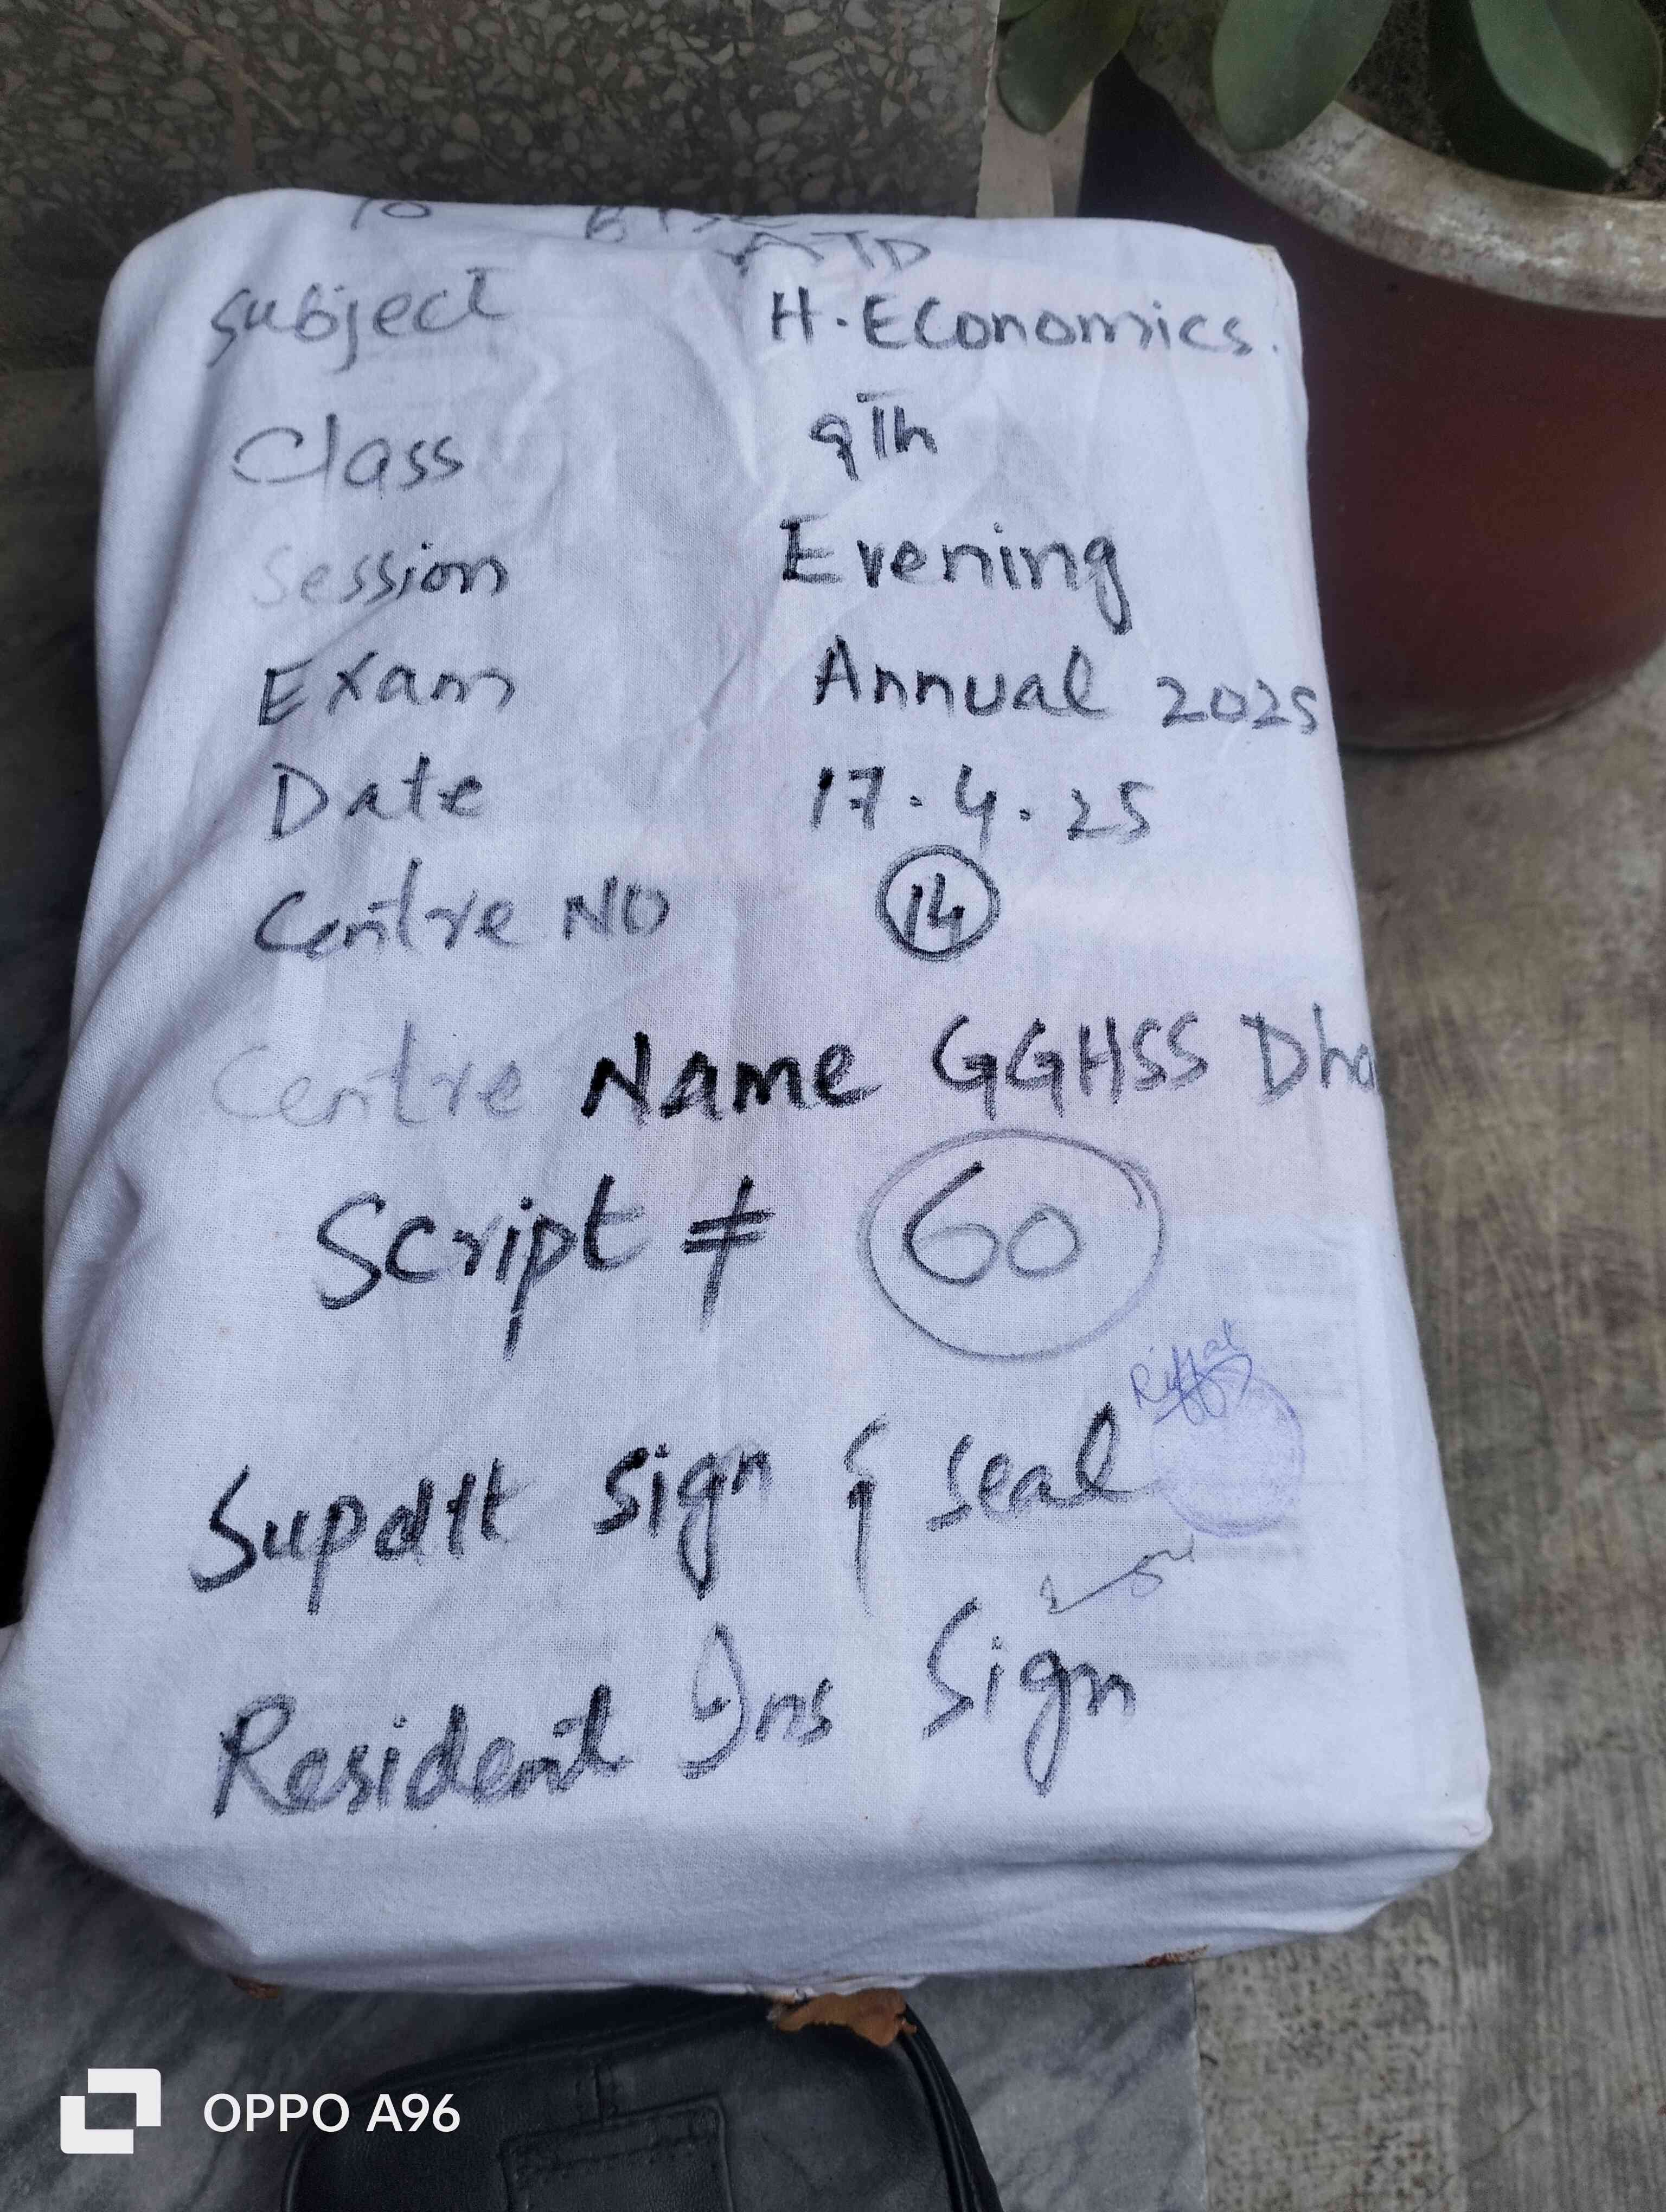 To BISE
ATD
Subject H. Economics.
Class 9Th
Session Evening
Exam Annual 2025
Date 17.4.25
Centre NO 14
Centre Name GGHSS Dha
Script # 60
Riffat
Supdtt Sign & Seal
Resident Ins Sign
OPPO A96